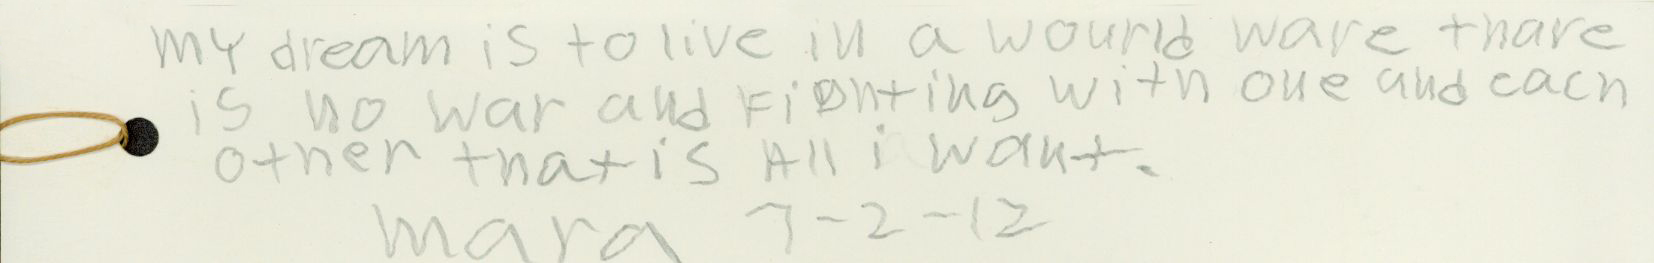 my dream is to live in a wourld ware thare
is no war and Fighting with one and each
other that is All i want.
mara 7-2-12